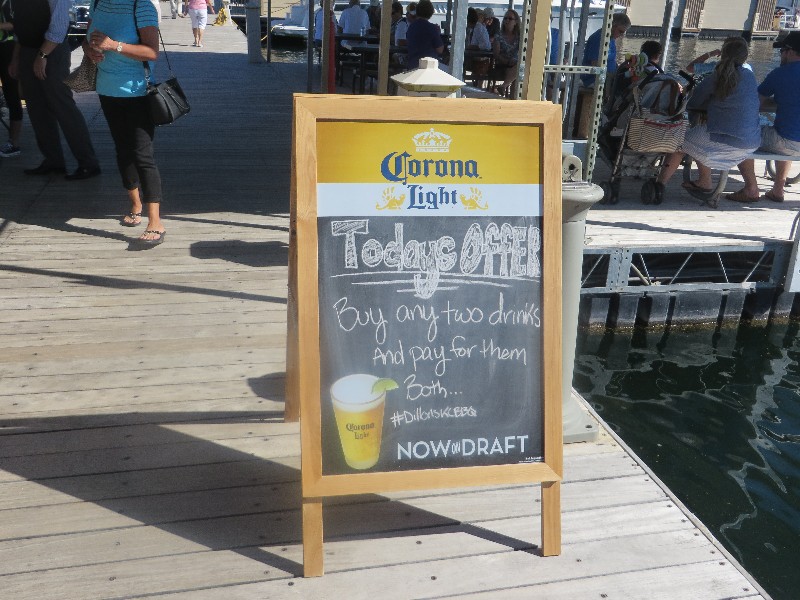 Corona
Light
Todays OFFER
Buy any two drinks
And pay for them
Both...
Corona
Light
NOW ON DRAFT